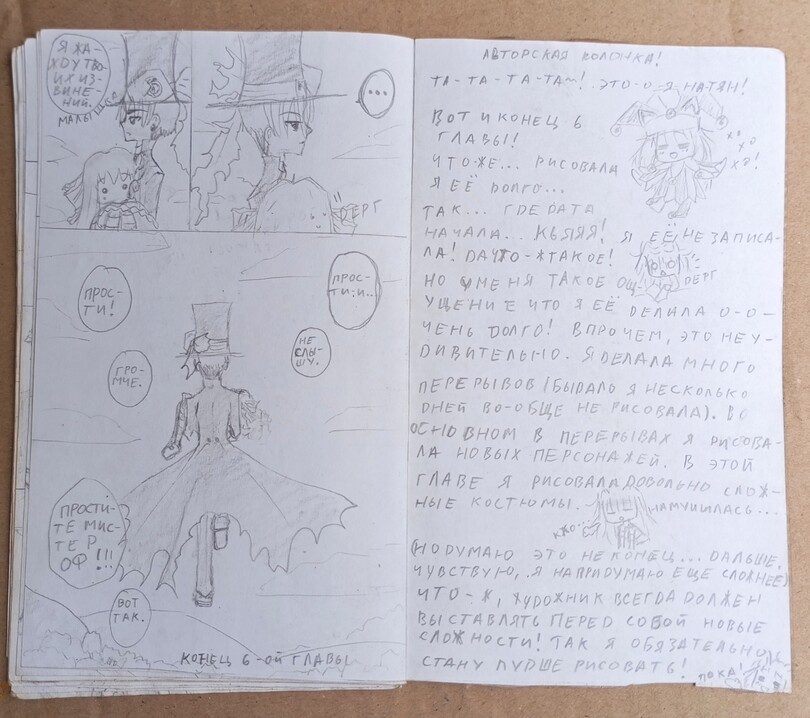 Я ЖА-
ЖДУ ТВО-
ИХ ИЗ-
ВИНЕ-
НИЙ.
...
ДЕРГ
ПРОС-
ТИ!
ПРОС-
ТИ:И..
ГРО-
МЧЕ.
НЕ
СЛЫ-
ШУ.
ПРОСТИ-
ТЕ МИС-
ТЕР
ОФ!!!
ВОТ
ТАК.
КОНЕЦ 6-ОЙ ГЛАВЫ
АВТОРСКАЯ КОЛОНКА!
ТА-ТА-ТА-ТА~! ЭТО-О Я НАТЯН!
ВОТ И КОНЕЦ 6
ГЛАВЫ!!
ХА
ХО
ХЭ!
ЧТО ЖЕ... РИСОВАЛА
Я ЕЁ ДОЛГО...
ТАК... ГДЕ ДАТА
НАЧАЛА... КЬЯЯЯ! Я ЕЁ НЕ ЗАПИСА-
ЛА! ДА ЧТО-Ж ТАКОЕ!
ДЕРГ
НО У МЕНЯ ТАКОЕ ОЩ-
УЩЕНИЕ ЧТО Я ЕЁ ДЕЛАЛА О-О-
ЧЕНЬ ДОЛГО! ВПРОЧЕМ, ЭТО НЕ У-
ДИВИТЕЛЬНО. Я ДЕЛАЛА МНОГО
ПЕРЕРЫВОВ (БЫВАЛО Я НЕСКОЛЬКО
ДНЕЙ ВО-ОБЩЕ НЕ РИСОВАЛА). ВО
ОСНОВНОМ В ПЕРЕРЫВАХ Я РИСОВА-
ЛА НОВЫХ ПЕРСОНАЖЕЙ. В ЭТОЙ
ГЛАВЕ Я РИСОВАЛА ДОВОЛЬНО СЛОЖ-
НЫЕ КОСТЮМЫ. НАМУЧИЛАСЬ...
(НО ДУМАЮ ЭТО НЕ КОНЕЦ... ДАЛЬШЕ,
ЧУВСТВУЮ, Я НАПРИДУМАЮ ЕЩЕ СЛОЖНЕЕ)
ЧТО-Ж, ХУДОЖНИК ВСЕГДА ДОЛЖЕН
ВЫСТАВЛЯТЬ ПЕРЕД СОБОЙ НОВЫЕ
СЛОЖНОСТИ! ТАК Я ОБЯЗАТЕЛЬНО
СТАНУ ЛУДШЕ РИСОВАТЬ! ПОКА!